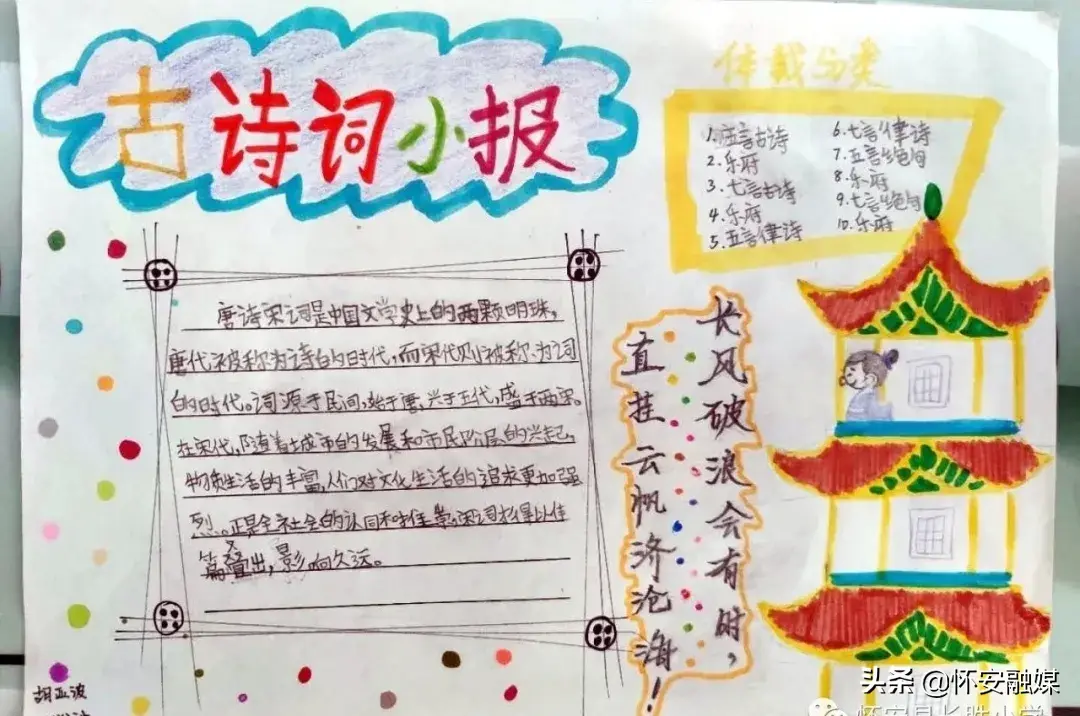 古诗词小报
体裁分类
1.五言古诗
2.乐府
3.七言古诗
4.乐府
5.五言律诗
6.七言律诗
7.五言绝句
8.乐府
9.七言绝句
10.乐府
唐诗宋词是中国文学史上的两颗明珠，
唐代被称为诗的时代，而宋代则被称为词
的时代。词源于民间，始于唐，兴于五代，盛于两宋。
在宋代，随着城市的发展和市民阶层的兴起，
物质生活的丰富，人们对文化生活的追求更加强
烈。正是全社会的认同和推崇，宋词才得以佳
篇叠出，影响久远。
长风破浪会有时，
直挂云帆济沧海！
胡亚波
头条 @怀安融媒
怀安县长胜小学